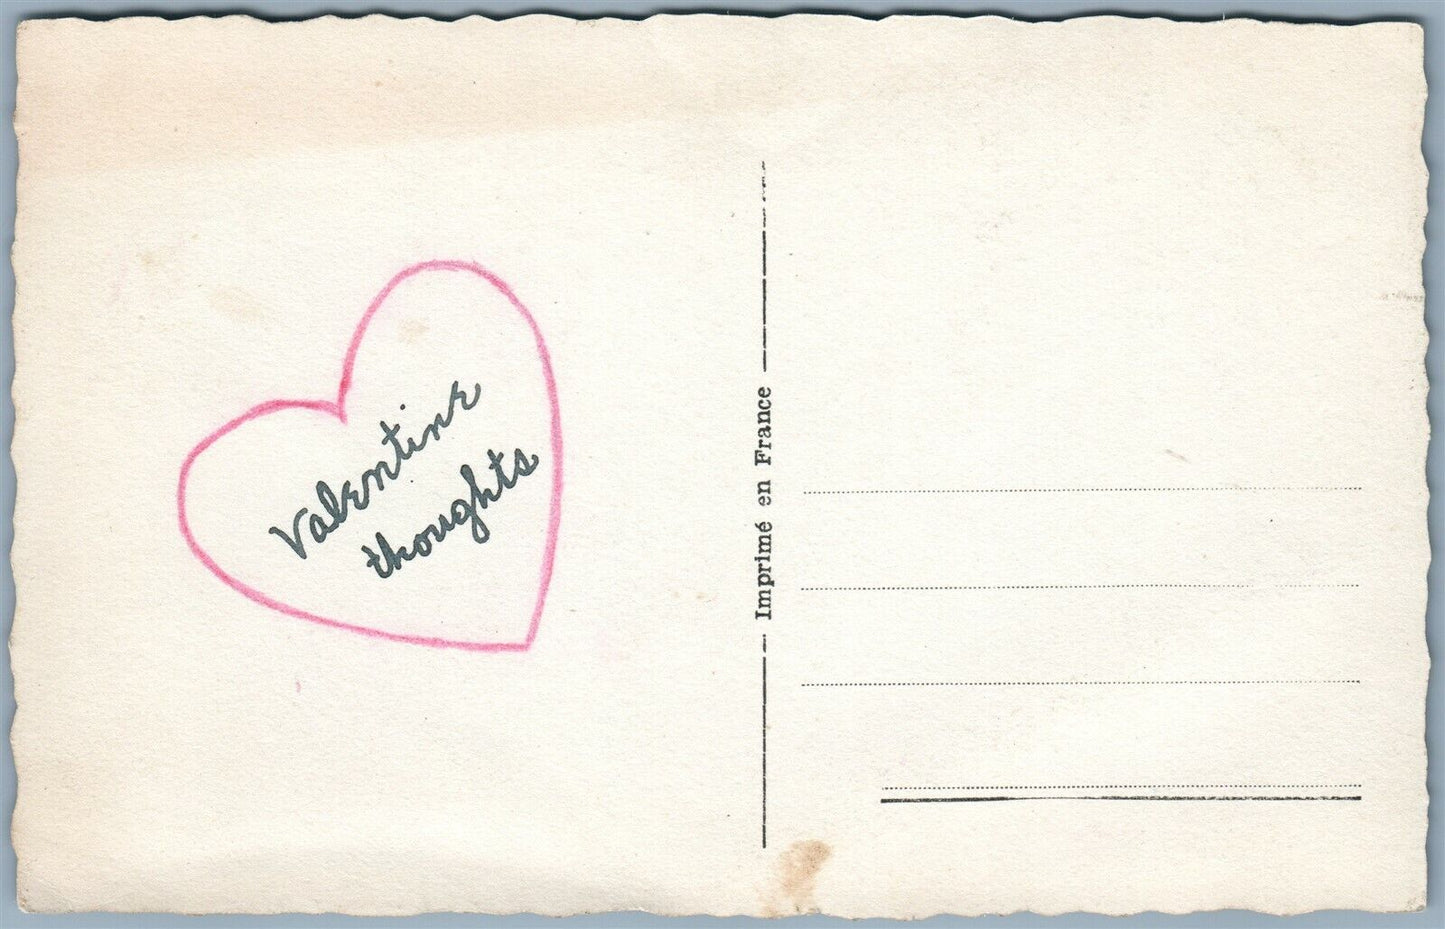 Valentine
thoughts
Imprimé en France